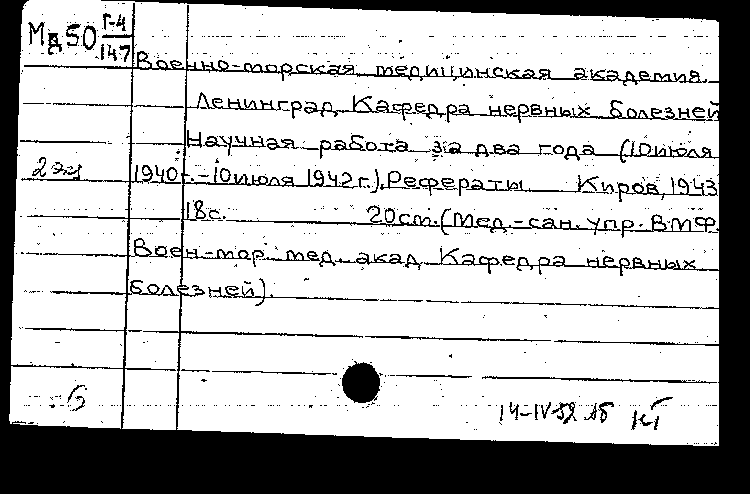 Мд50 Г-4
147
Военно-морская медицинская академия.
Ленинград. Кафедра нервных болезней
Научная работа за два года (10 июля
2 экз 1940г. - 10 июля 1942 г.). Рефераты. Киров, 1943
18 с. 20 см. (Мед.-сан. упр. ВМФ.
Воен-мор. мед. акад. Кафедра нервных
болезней).
б
14-IV-52 КТ